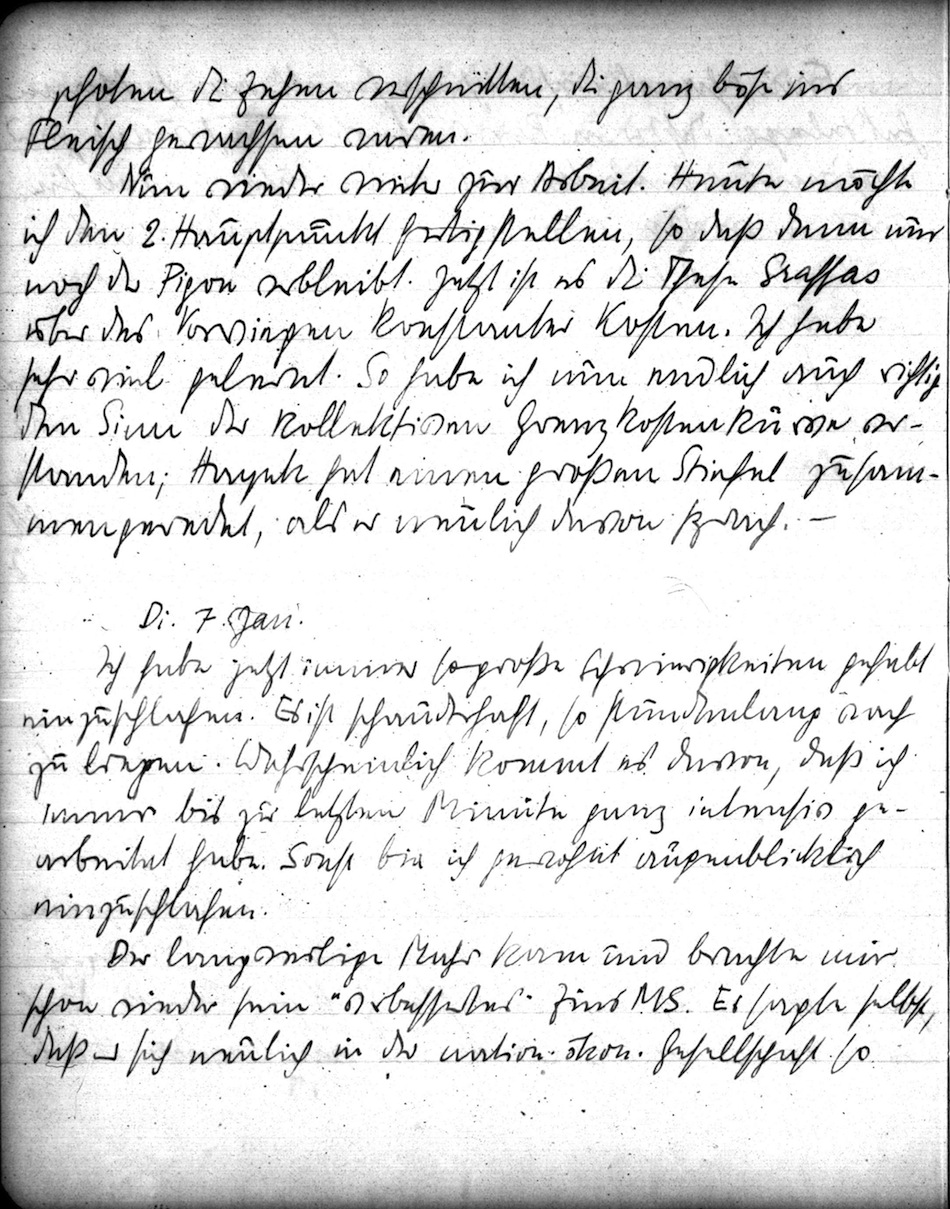 geholen die Zehen verschnitten, die ganz böse ins
Fleisch gewachsen waren.
Nun wieder weiter zur Arbeit. Heute möchte
ich den 2. Hauptpunkt fertigstellen, so daß dann nur
noch der Pigou verbleibt. Jetzt ist es die These Sraffas
über das Vorwiegen konstanter Kosten. Ich habe
sehr viel gelernt. So habe ich nun endlich auch richtig
den Sinn der kollektiven Grenzkostenkurve ver-
standen; Hayek hat einen großen Stiefel zusam-
mengeredet, als er neulich davon sprach. —
Di. 7. Jan.
Ich habe jetzt immer so große Schwierigkeiten gehabt
einzuschlafen. Es ist schauderhaft, so stundenlang wach
zu liegen. Wahrscheinlich kommt es davon, daß ich
immer bis zur letzten Minute ganz intensiv ge-
arbeitet habe. Sonst bin ich gewohnt augenblicklich
einzuschlafen.
Der langweilige Mahr kam und brachte mir
schon wieder sein "verbessertes" Zins MS. Er sagte selbst,
daß er sich neulich in der nation. ökon. Gesellschaft so